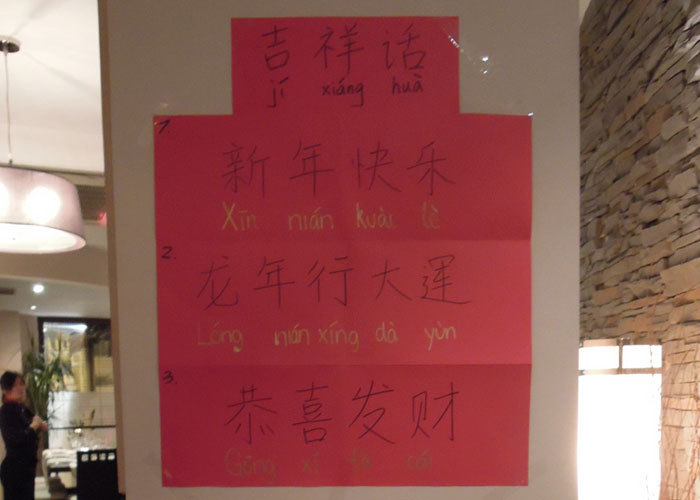 吉祥话
jí xiáng huà
1.
新年快乐
Xīn nián kuài lè
2.
龙年行大運
Lóng nián xíng dà yùn
3.
恭喜发财
Gōng xǐ fā cái